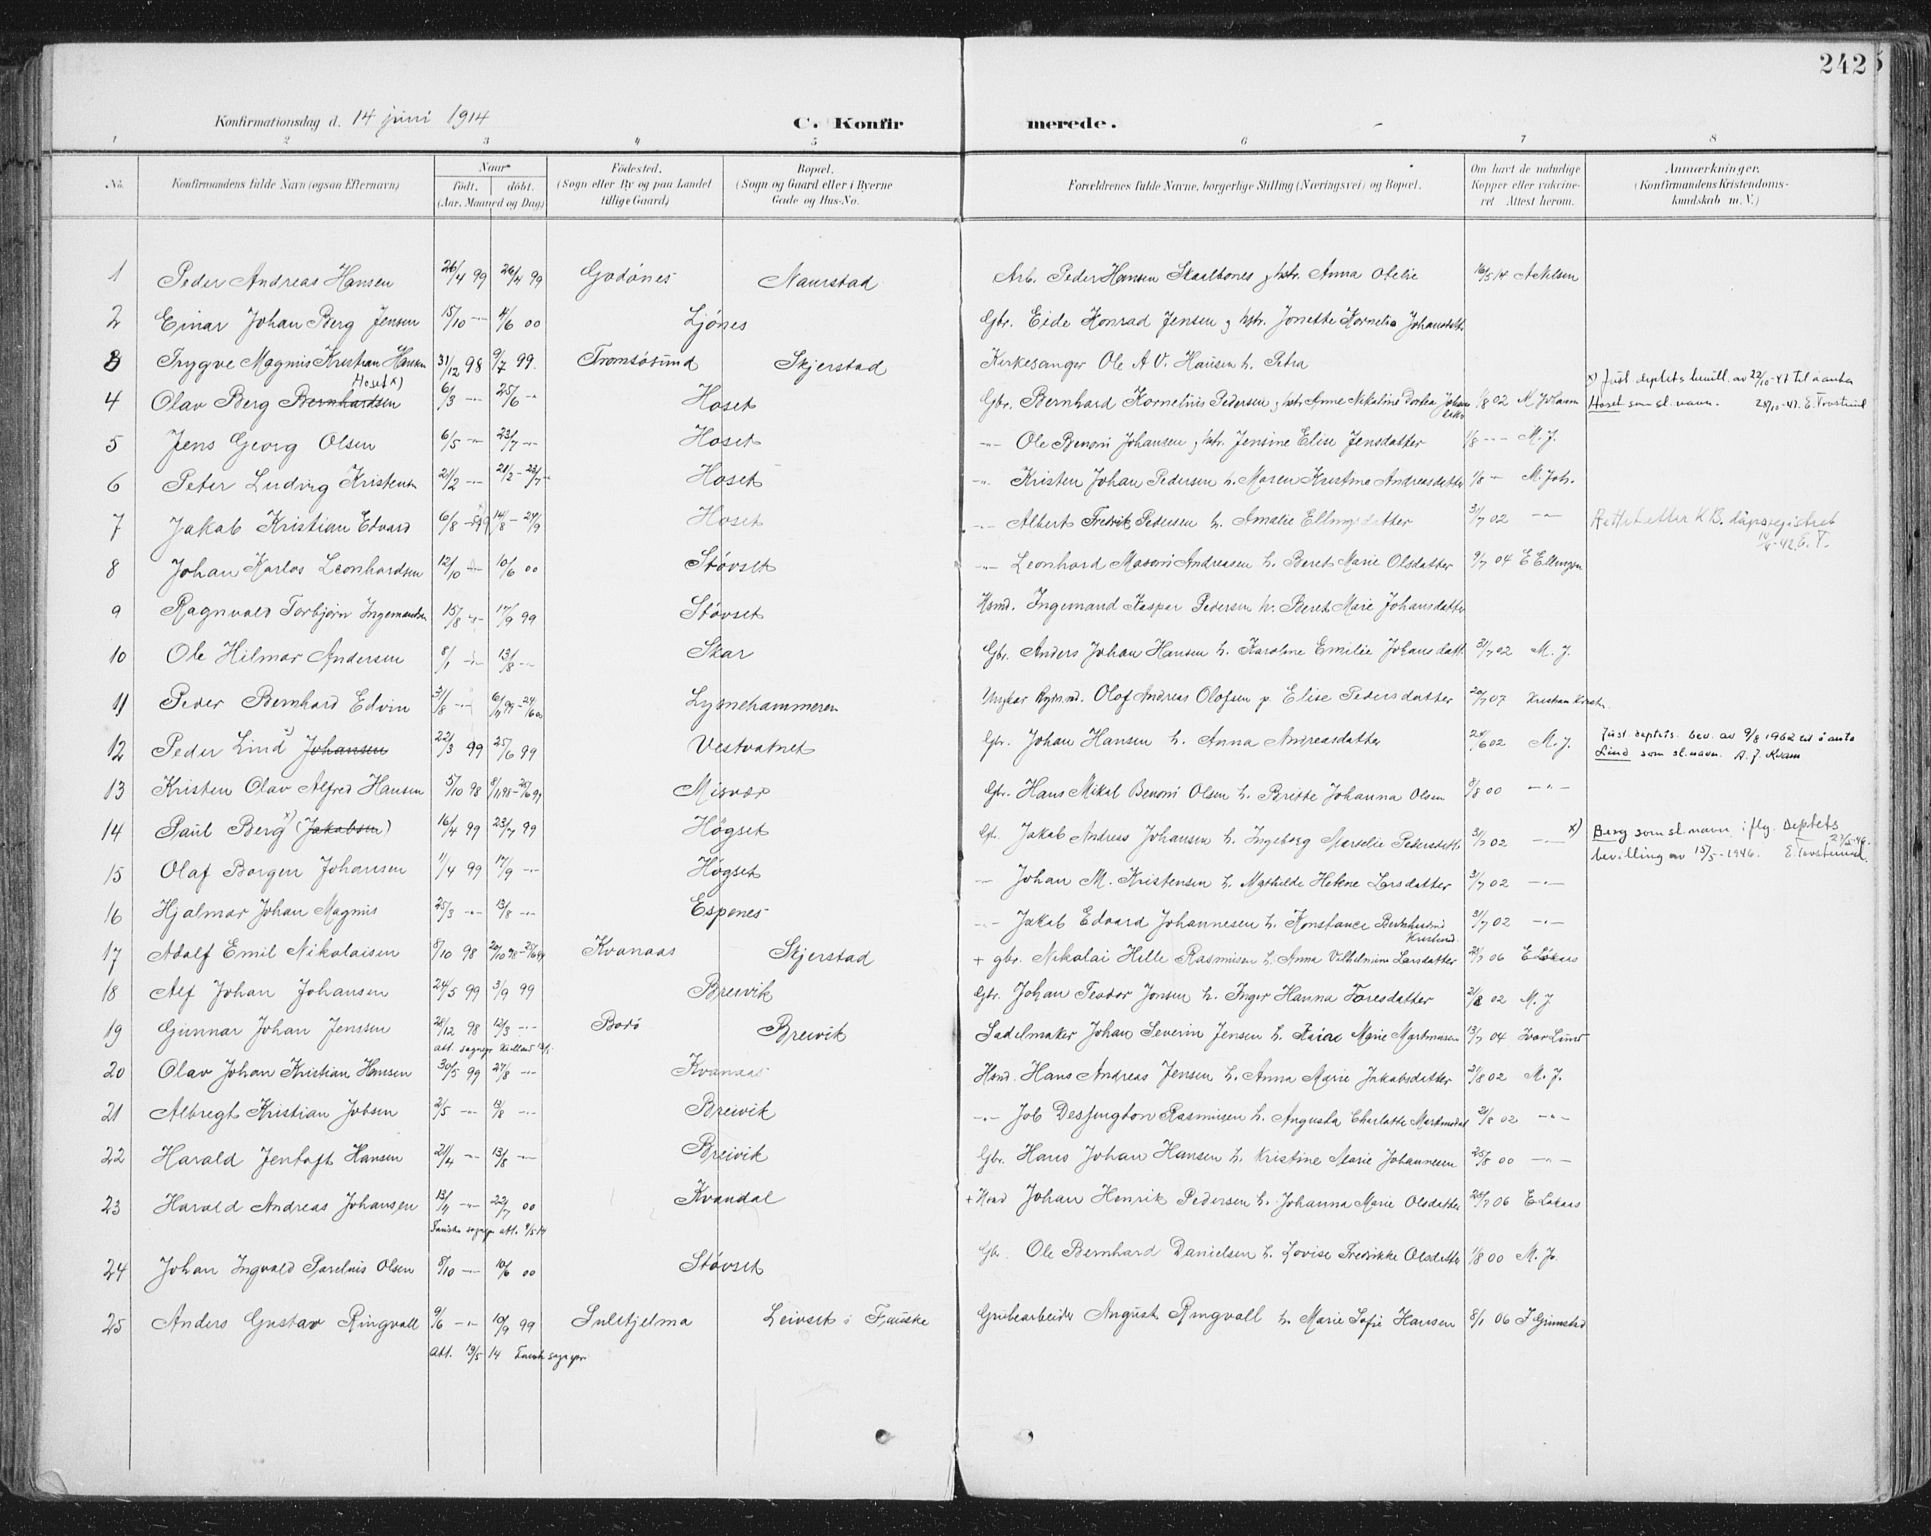 242
Konfirmationsdag d. 14 juni 1914
C. Konfir merede.
1 2 3 4 5 6 7 8
No. Konfirmandens fulde Navn (ogsaa Efternavn) Naar födt. döbt. (Aar, Maaned og Dag) Födested. (Sogn eller By og paa Landet tillige Gaard) Bopæl. (Sogn og Gaard eller i Byerne Gade og Hus-No. Forældrenes fulde Navne, borgerlige Stilling (Næringsvei) og Bopæl. Om havt de naturlige Kopper eller vakcineret Attest herom. Anmerkninger. (Konfirmandens Kristendomskundskab m. V.)
1 Peder Andreas Hansen 26/4 99 26/4 99 Godönes Naurstad Arb. Peder Hansen Skaalbones, hstr. Anna Otelie 16/5 14 A Nilsen
2 Einar Johan Berg Jensen 15/10 -"- 4/6 00 Ljönes Gbr. Eide Konrad Jensen, hstr. Jonette Kornelia Johansdatt.
3 Trygve Magnus Kristian Hansen 31/12 98 9/7 99. Tromsösund Skjerstad Kirkesanger Ole A V. Hansen h. Petra
Hoset x)
4 Olav Berg Bernhardsen 6/3 -"- 25/6 -"- Hoset Gbr. Bernhard Kornelius Pedersen, hstr. Anne Nikoline Dorthea Johansdatter 1/8 02 M. Johann
x) Just. deptets bevill. av 22/10-47 til å anta
Hoset som sl.navn. 28/10-47. E. Tovsrud
5 Jens Georg Olsen 6/5 -"- 23/7 -"- Hoset -"- Ole Benoni Johansen, hstr. Jensine Elise Jensdatter 1/8 -"- M. J.
6 Peter Ludvig Kristensen 21/2 -"- 21/2 - 23/7 -"- Hoset -"- Kristen Johan Pedersen h. Maren Kristine Andreasdatter 1/8 - M. Joh.
7 Jakob Kristian Edvard 6/8 99 14/8 - 24/9 Hoset -"- Albert Fredrik Pedersen h. Amalie Ellingsdatter 31/7 02 -"- Rettet etter KB. dåpsregistret
E. T.
8 Johan Karlos Leonhardsen 12/10 -"- 10/6 00 Stövset -"- Leonhard Masoni Andreasen h. Beret Marie Olsdatter 9/7 04 E Ellingsen
9 Ragnvald Torbjörn Ingemundsen 15/8 -"- 17/9 99 Stövset Hsmd. Ingemand Kaspar Pedersen h. Beret Marie Johansdatter
10 Ole Hilmar Andersen 8/1 -"- 13/8 -"- Skar Gbr. Anders Johan Hansen h. Karoline Emilie Johansdatt 31/7 02 M. J.
11 Peder Bernhard Edvin 31/8 -"- 6/9 99 - 24/6 00 Lysnehammeren Ungkar Olof Andreas Olofsen p. Elise Pedersdatter 20/7 07
12 Peder Lind Johansen 22/3 99 25/6 99 Vestvatnet Gbr. Johan Hansen h. Anna Andreasdatter 24/6 02 M. J.
Just. deptets. bev. av 9/8 1962 til å anta
Lind som sl.navn. A. J. Kvam
13 Kristen Olav Alfred Hansen 5/10 98 8/11 98 - 25/6 99 Misvær Gbr. Hans Mikal Benoni Olsen h. Britte Johanna Olsen 8/8 00 -"-
14 Paul Berg x) (Jakobsen) 16/4 99 23/7 99 Högset Gbr. Jakob Andreas Johansen h. Ingeborg Marselie Pedersdatt. 31/7 02 -"-
x) Berg som sl.navn ifly. Deptets
bevilling av 15/5-1946. E. Tovsrud
15 Olaf Borgen Johansen 1/4 99 17/9 -"- Högset -"- Johan M. Kristensen h. Mathilde Helene Larsdatter 31/7 02 -"-
16 Hjalmar Johan Magnus 25/3 -"- 13/8 -"- Espenes -"- Jakob Edvard Johannesen h. Konstance 31/7 02 -"-
17 Adolf Emil Nikolaisen 8/10 98 20/10 98 - 25/6 99 Kvanaas Skjerstad + gbr. Nikolai Hille Rasmusen h. Anna Vilhelmine Larsdatter 24/7 06 E Lökaas
18 Alf Johan Johansen 24/5 99 3/9 99 Breivik Gbr. Johan Teodor Jonsen h. Inger Hanna Toresdatter 21/8 02 M. J
19 Gunnar Johan Jenssen 28/12 98 12/3 -"- Bodö Breivik Sadelmaker Johan Severin Jensen h. Marie 13/7 04
att. sognepr
20 Olav Johan Kristian Hansen 30/5 99 27/8 -"- Kvanaas Hsmd. Hans Andreas Jensen h. Anna Marie Jakobsdatter 21/8 02 M. J.
21 Albregt Kristian Jobsen 2/5 -"- 13/8 -"- Breivik -"- Job Desjington Rasmusen h. Augusta Charlotte 21/8 02 -"-
22 Harald Jentoft Hansen 21/4 -"- 13/8 -"- Breivik Gbr. Hans Johan Hansen h. Kristine Marie Johannesen 25/8 00 -"-
23 Harald Andreas Johansen 13/4 -"- 22/7 00 Kvandal + Hsmd Johan Henrik Pedersen h. Johanna Marie Olsdatter 25/7 06 E Lökaas
Fauske sognepr att. 9/5 14
24 Johan Ingvald Parelius Olsen 8/10 -"- 10/6 00 Stövset Gbr. Ole Bernhard Danielsen h. Lovise Fredrikke Olsdatter 1/8 00 M. J.
25 Anders Gustav Ringvall 9/6 -"- 10/9 99 Sulitjelma Leivset i Fauske Grubearbeider August Ringvall h. Marie Sofie Hansen 8/1 06 J Grimstad
Att. 13/5 14 Fauske sognepr.